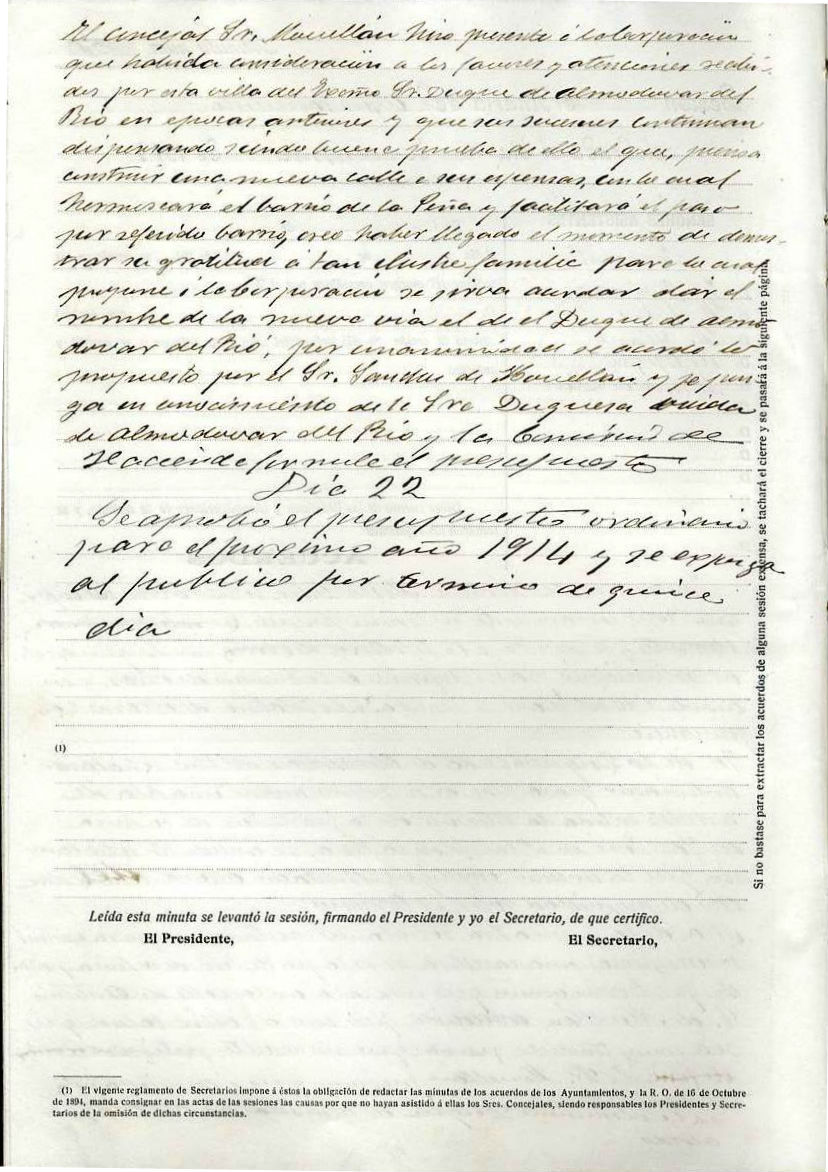 El concejal Sr. Mouellán hizo presente á la Corporación
que habida consideracion a los favores y atenciones recibi-
dos por esta villa del Excmo Sr. Duque de Almodovar del
Rio en epocas anteriores y que sus sucesores continuan
dispensando siendo buena prueba de ello el que, piensa
construir una nueva calle a sus espensas, con la cual
hermoseará el barrio de la Peña y facilitará el paso
por referido barrio, creo haber llegado el momento de demos-
trar su gratitud a tan ilustre familia para lo cual
propone á la Corporacion se sirva acordar dar el
nombre de la nueva via el de el Duque de Almo
dovar del Rio, por unanimidad se acordó lo
propuesto por el Sr. Sanchez de Mouellán y se pon
ga en conocimiento de la Sra Duquesa viuda
de Almodovar del Rio y la Comision de
Hacienda formule el presupuesto
Dia 22
Se aprobó el presupuesto ordinario
para el proximo año 1914 y se exponga
al publico por termino de quince
dia
(1)
Leída esta minuta se levantó la sesión, firmando el Presidente y yo el Secretario, de que certifico.
El Presidente, El Secretario,
(1) El vigente reglamento de Secretarios impone á éstos la obligación de redactar las minutas de los acuerdos de los Ayuntamientos, y la R. O. de 16 de Octubre
de 1894, manda consignar en las actas de las sesiones las causas por que no hayan asistido á ellas los Sres. Concejales, siendo responsables los Presidentes y Secre-
tarios de la omisión de dichas circunstancias.
Si no bastase para extractar los acuerdos de alguna sesión extensa, se tachará el cierre y se pasará á la siguiente página.